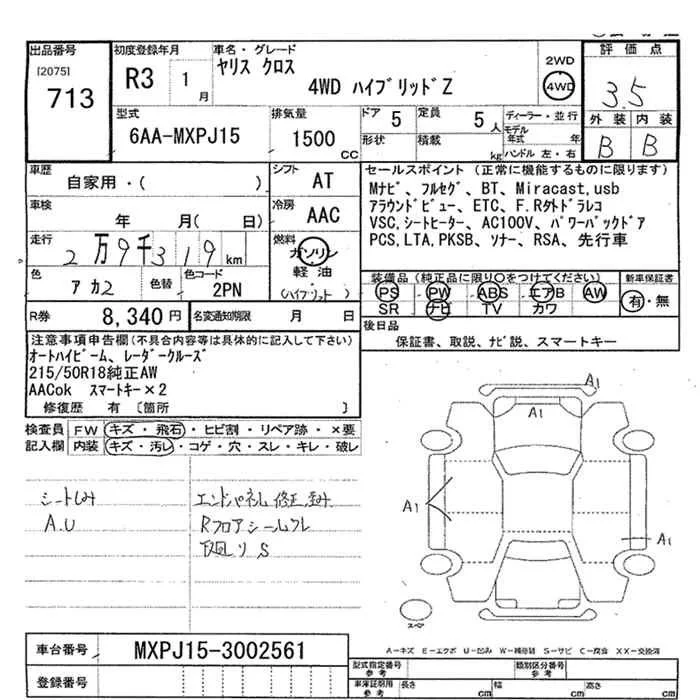 出品番号 初度登録年月 車名・グレード 評価点
[2075] 713
R3 1月
ヤリス クロス
4WD ハイブリッドZ
2WD
4WD
3.5
外装 内装
B B
型式 6AA-MXPJ15
排気量 1500 CC
ドア 5 定員 5人
形状 積載 kg
ディーラー・並行
モデル年式 年
ハンドル 左・右
車歴 自家用・( )
シフト AT
車検 年 月( 日)
冷房 AAC
走行 2万9千319km
燃料 ガソリン
軽油
(ハイブリット)
色 アカ2 色替 色コード 2PN
R券 8,340円 名変通知期限 月 日
セールスポイント(正常に機能するものに限ります)
Mナビ、フルセグ、BT、Miracast,usb
アラウンドビュー、ETC、F.R外ドラレコ
VSC,シートヒーター、AC100V、パワーバックドア
PCS,LTA,PKSB、ソナー、RSA、先行車
装備品(純正品に限り〇をつけてください) 新車保証書
PS PW ABS エアB AW 有・無
SR ナビ TV カワ
後日品
保証書、取説、ナビ説、スマートキー
注意事項申告欄(不具合内容等は具体的に記入して下さい)
オートハイビーム、レーダークルーズ
215/50R18純正AW
AACok スマートキー×2
修復歴 有〔箇所 〕
検査員記入欄
FW キズ・飛石・ヒビ割・リペア跡・×要
内装 キズ・汚レ・コゲ・穴・スレ・キレ・破レ
シートしみ
A.U
エンドパネル修正済み
Rフロアシールハズレ
下廻りS
A1
A1
A1
A1
スペア
A=キズ E=エクボ U=凹み W=補修跡 S=サビ C=腐食 XX=交換済
車台番号 MXPJ15-3002561
登録番号
型式指定番号 参考 類別区分番号 参考
車庫証明用 参考 長さ cm 幅 cm 高さ cm